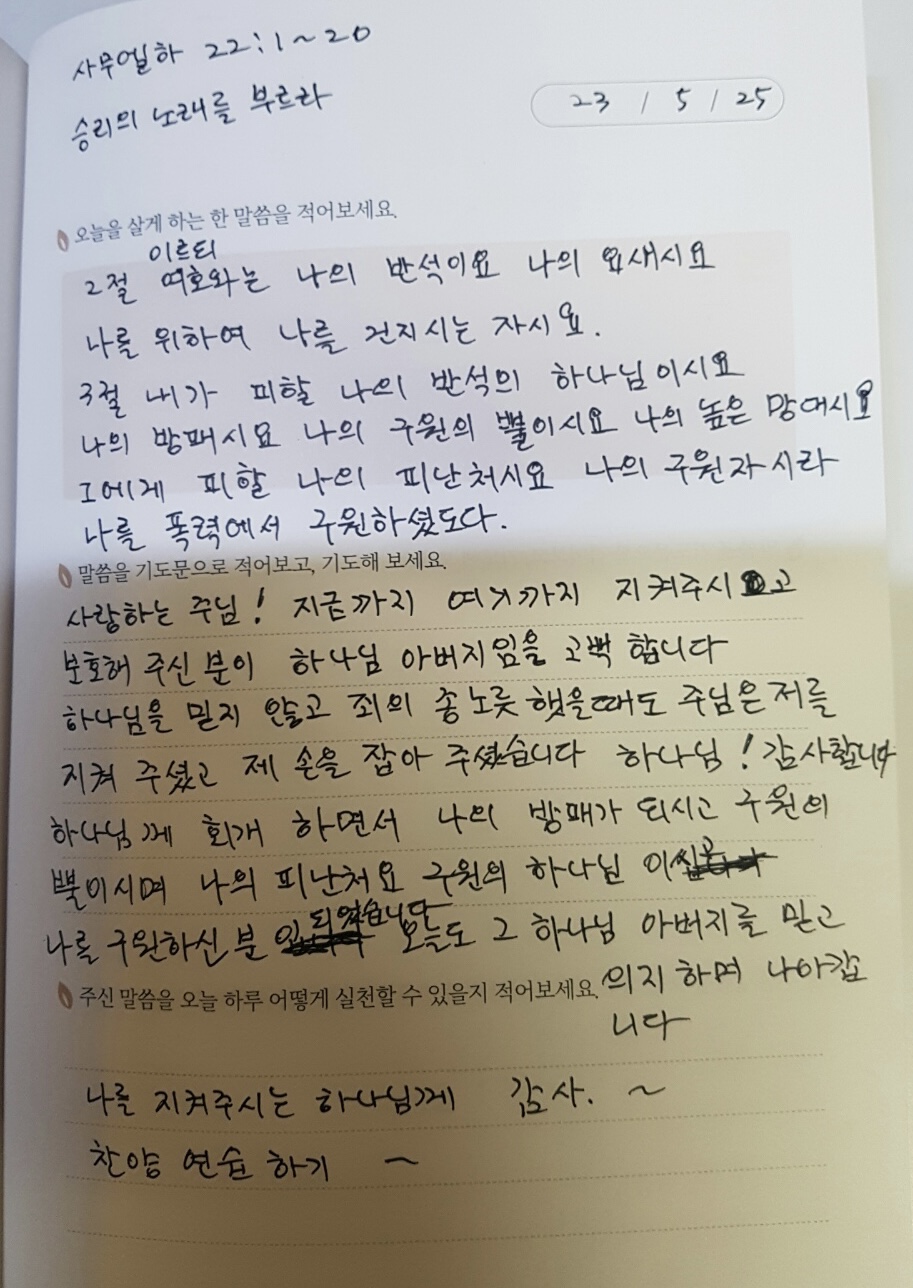 사무엘하 22:1~20
승리의 노래를 부르라
23 / 5 / 25
오늘을 살게 하는 한 말씀을 적어보세요.
이르되
2절 여호와는 나의 반석이요 나의 요새시요
나를 위하여 나를 건지시는 자시요.
3절 내가 피할 나의 반석의 하나님이시요
나의 방패시요 나의 구원의 뿔이시요 나의 높은 망대시요
그에게 피할 나의 피난처시요 나의 구원자시라
나를 폭력에서 구원하셨도다.
말씀을 기도문으로 적어보고, 기도해 보세요.
사랑하는 주님! 지금까지 여기까지 지켜주시고
보호해 주신 분이 하나님 아버지임을 고백 합니다
하나님을 믿지 않고 죄의 종노릇 했을때도 주님은 저를
지켜 주셨고 제 손을 잡아 주셨습니다 하나님! 감사합니다
하나님께 회개 하면서 나의 방패가 되시고 구원의
뿔이시며 나의 피난처요 구원의 하나님 이
되었습니다
나를 구원하신 분 오늘도 그 하나님 아버지를 믿고
의지 하며 나아갑
니다
주신 말씀을 오늘 하루 어떻게 실천할 수 있을지 적어보세요.
나를 지켜주시는 하나님께 감사. ~
찬양 연습 하기 ~